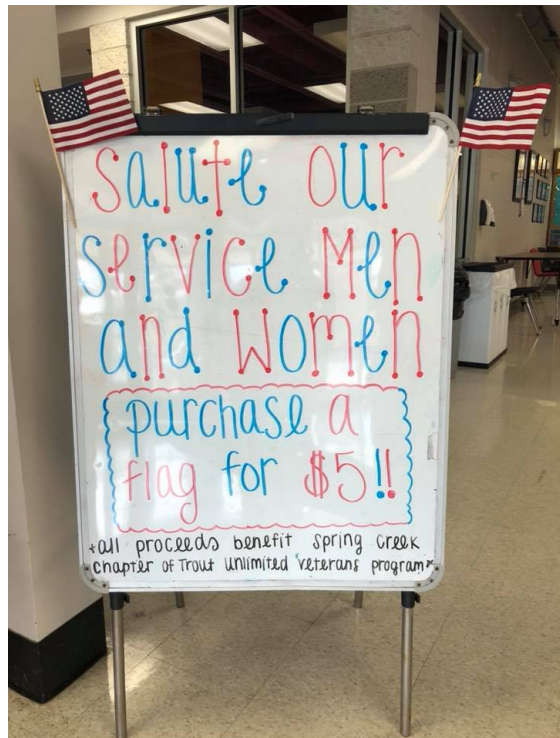 salute our
service Men
and Women
purchase a
flag for $5!!
*all proceeds benefit spring creek
chapter of Trout unlimited veterans program*